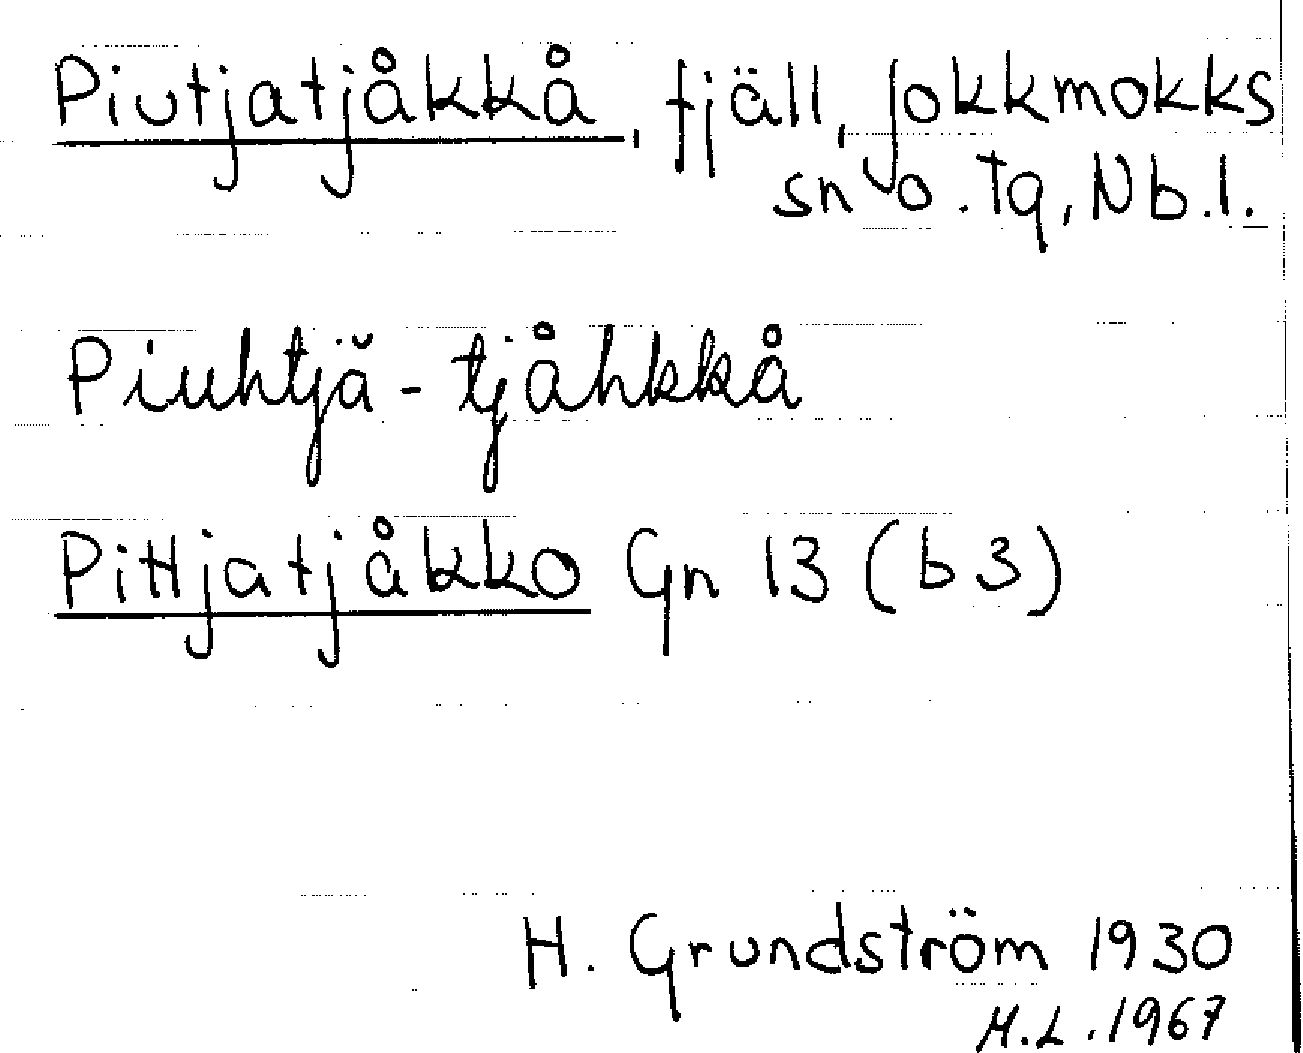 Piutjatjåkkå, fjäll, Jokkmokks
sn o. tg, Nb.l.
Piuhtjă-tjåhkkå
Pittjatjåkko Gn 13 (b3)
H. Grundström 1930
H.L. 1967